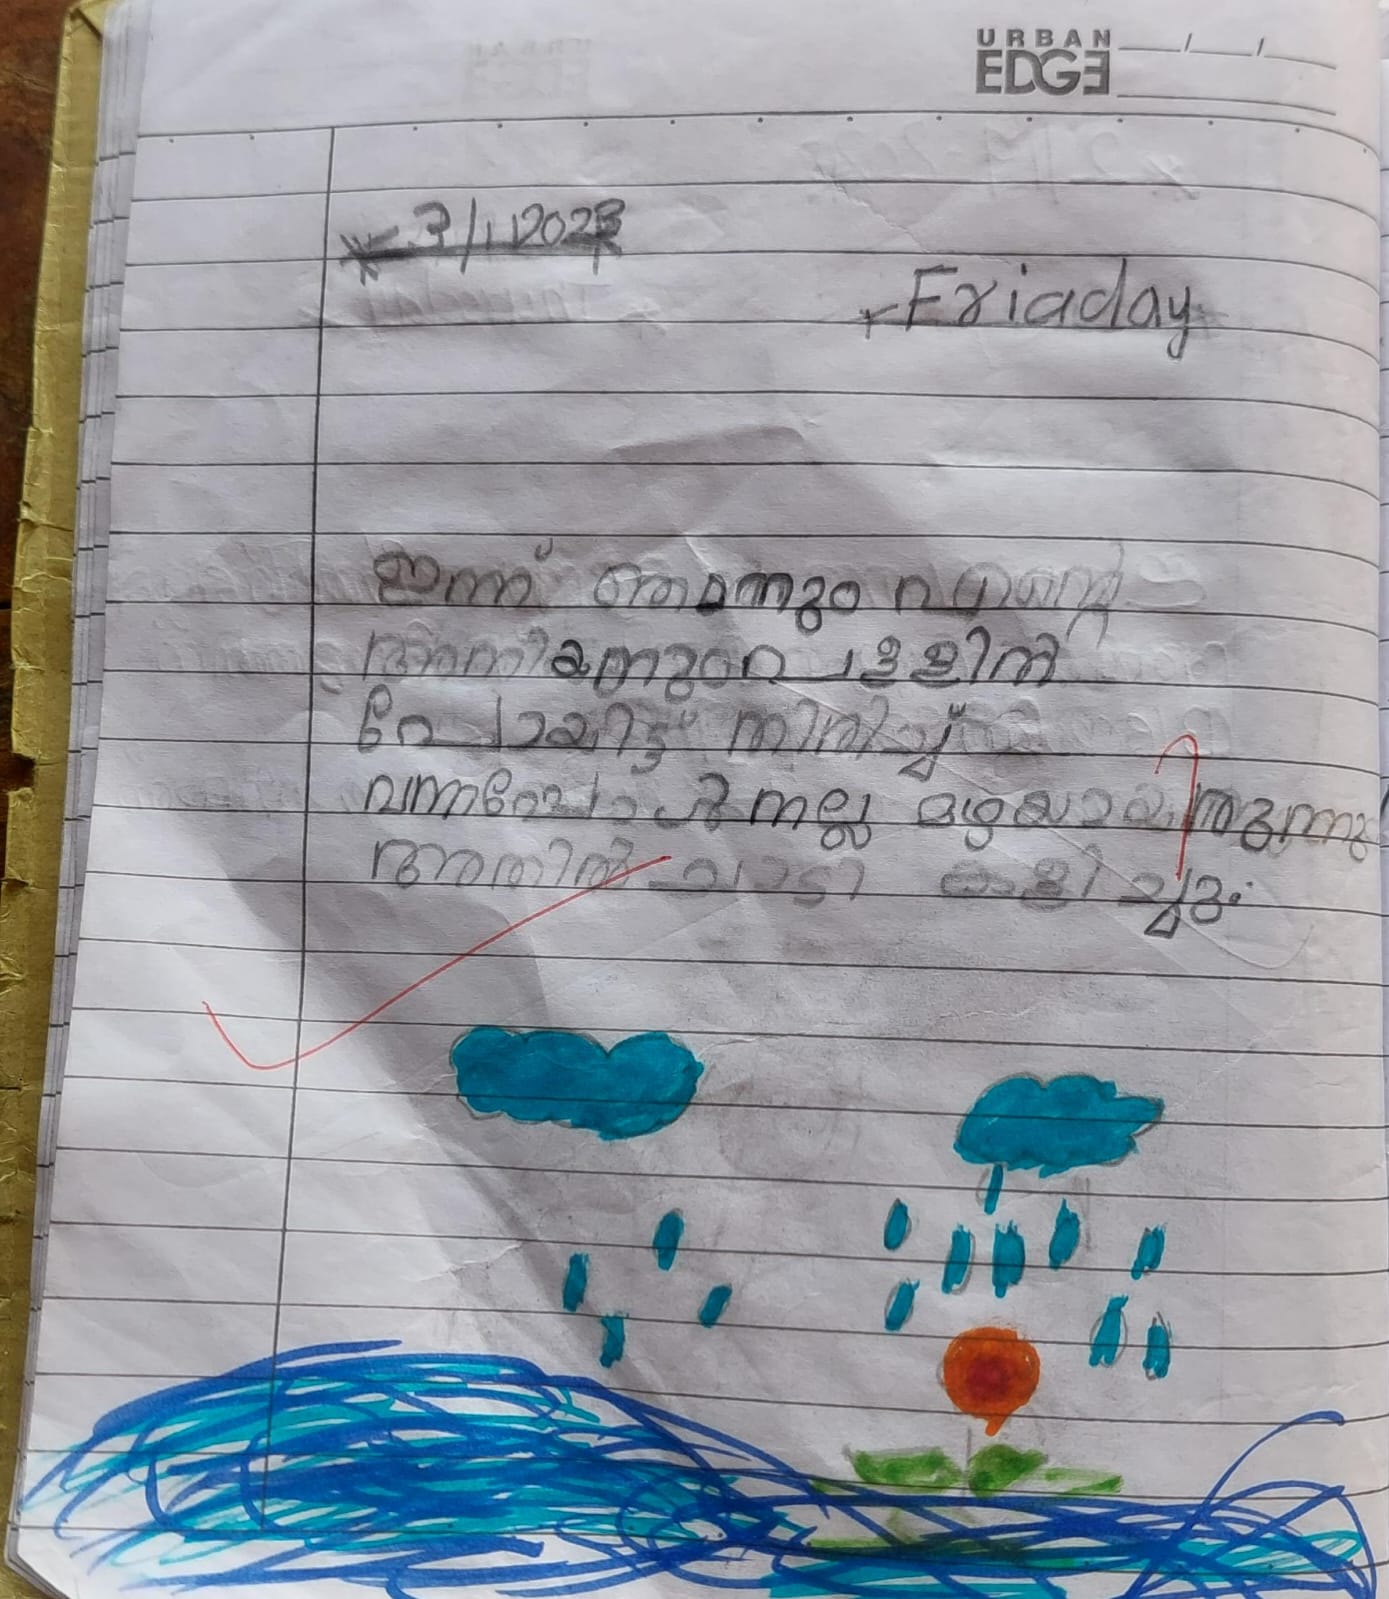 URBAN
EDGE
3/11/2023
Friaday
ഇന്ന് ഞാനും എന്റെ
അനിയനും പള്ളിൽ
പോയിട്ട് തിരിച്ച്
വന്നപ്പോൾ നല്ല മഴയായിരുന്നു
അതിൽ ചാടി കളിച്ചു.